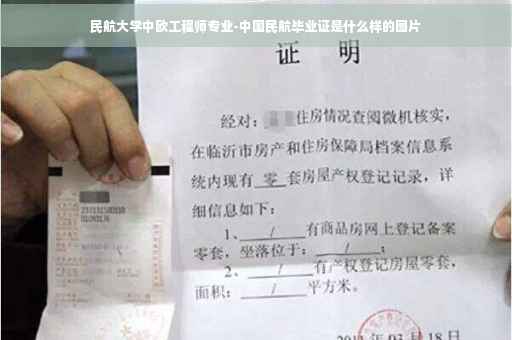 民航大学中欧工程师专业-中国民航毕业证是什么样的图片
证 明
经对：住房情况查阅微机核实，
在临沂市房产和住房保障局档案信息系
统内现有 零 套房屋产权登记记录，详
细信息如下：
1、 / 有商品房网上登记备案
零套，坐落位于： / ；
2、 / 有产权登记房屋零套，
面积： / 平方米。
03月18日